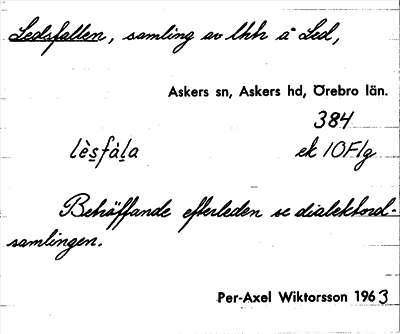 Ledsfallen, samling av lhh å Led,
Askers sn, Askers hd, Örebro län.
384
lèsfàla ek 10F1g
Behäffande efterleden se dialektord-
samlingen.
Per-Axel Wiktorsson 1963